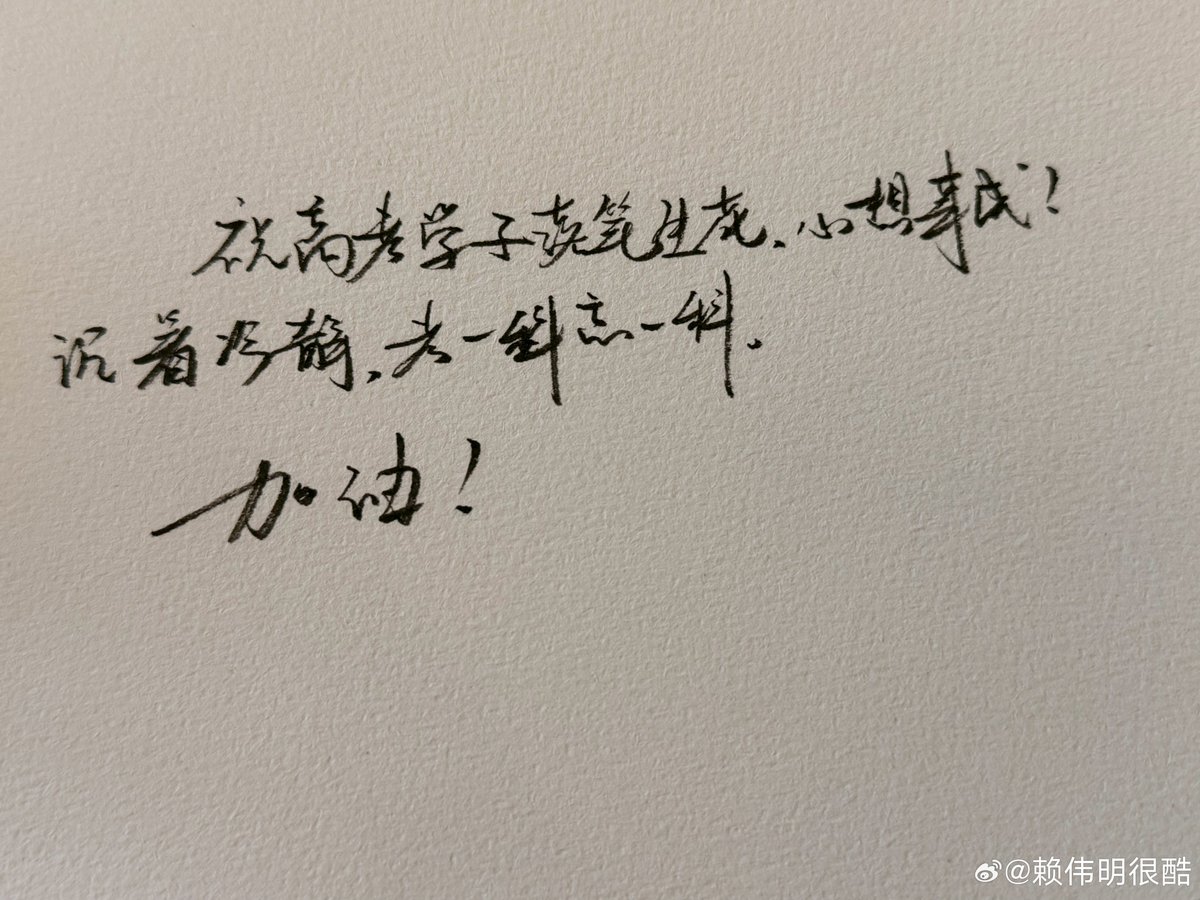 祝高考学子读笔生花、心想事成！
沉着冷静、考一科忘一科、
加油！
@赖伟明很酷